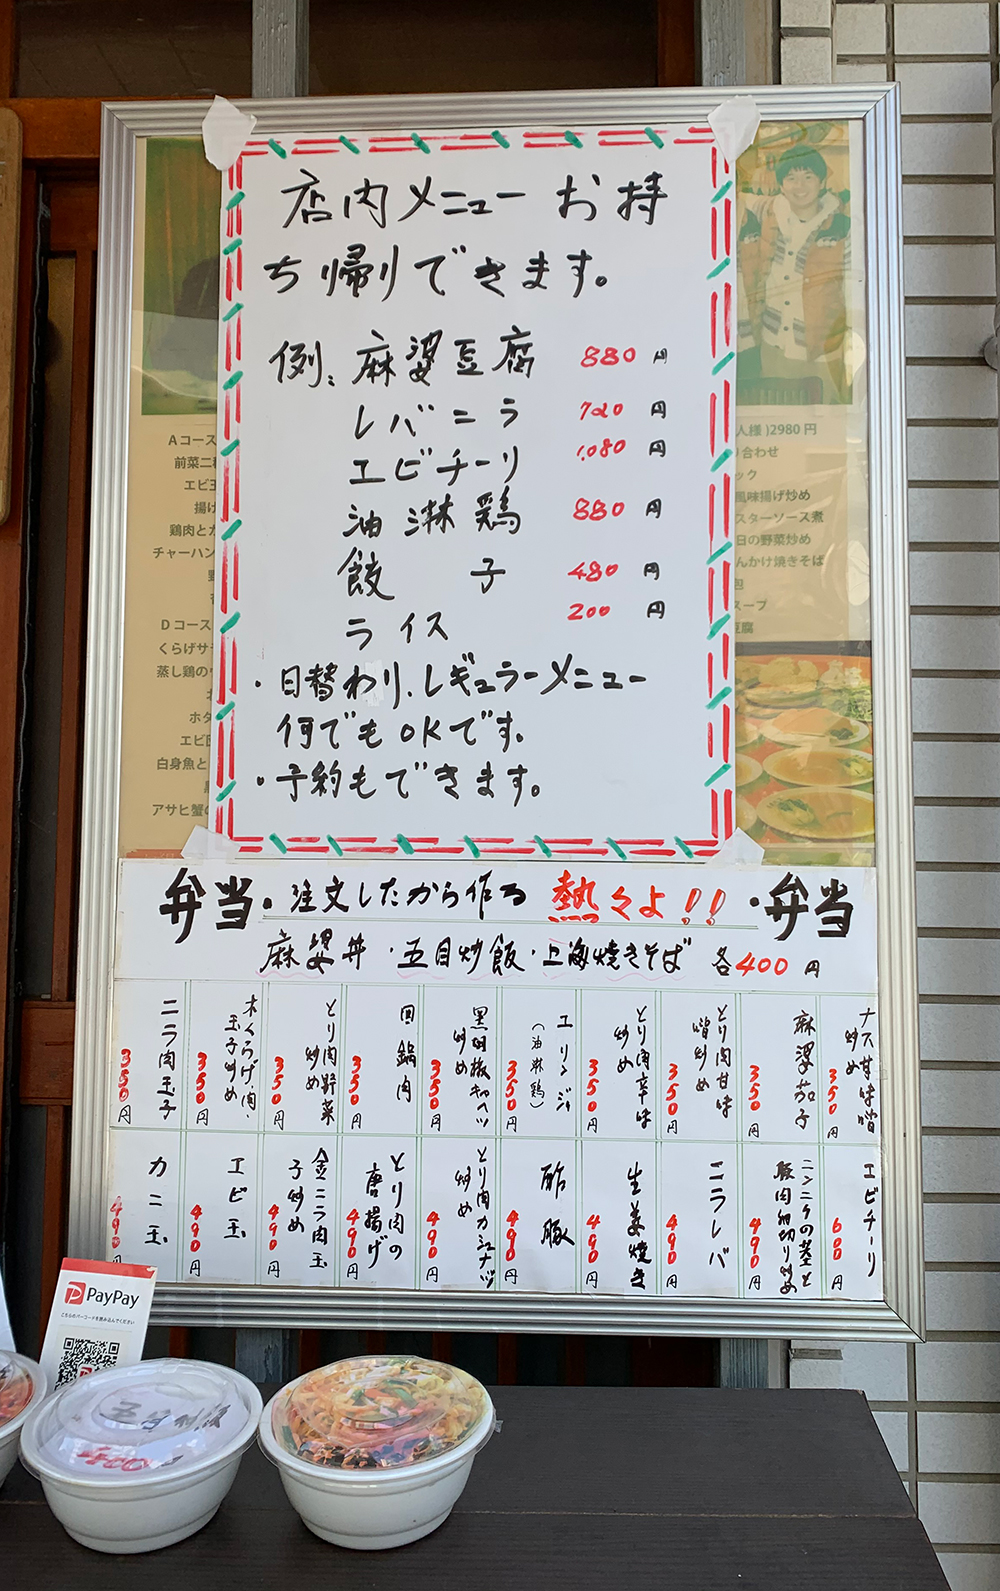 店内メニュー お持
ち帰りできます。
例、麻婆豆腐 880 円
レバニラ 720 円
エビチーリ 1,080 円
油淋鶏 880 円
餃子 480 円
ライス 200 円
・日替わり、レギュラーメニュー
何でもOKです。
・予約もできます。
Aコース
前菜二
エビ
揚げ
鶏肉と
チャーハン
Dコース
くらげサ
蒸し鶏の
ホタ
エビ
白身魚と
アサヒ蟹の
人様)2980円
り合わせ
ック
風味揚げ炒め
スターソース煮
日の野菜炒め
んかけ焼きそば
包
スープ
豆腐
弁当・注文したから作る 熱々よ!!・弁当
麻婆丼・五目炒飯・上海焼きそば 各400円
ナス甘味噌
炒め 350円
麻婆茄子 350円
とり肉甘味
噌炒め 350円
とり肉辛味
炒め 350円
エリンジ
(油淋鶏) 350円
黒胡椒キャベツ
炒め 350円
回鍋肉 350円
とり肉野菜
炒め 350円
木くらげ、肉、
玉子炒め 350円
ニラ肉玉子 350円
エビチーリ 600円
ニンニクの茎と
豚肉細切り炒め 490円
ニラレバ 490円
生姜焼き 490円
酢豚 490円
とり肉カシュナッツ
炒め 490円
とり肉の
唐揚げ 490円
金ニラ肉玉
子炒め 490円
エビ玉 490円
カニ玉 490円
PayPay
こちらのバーコードを読み込んでください
五目炒飯
400